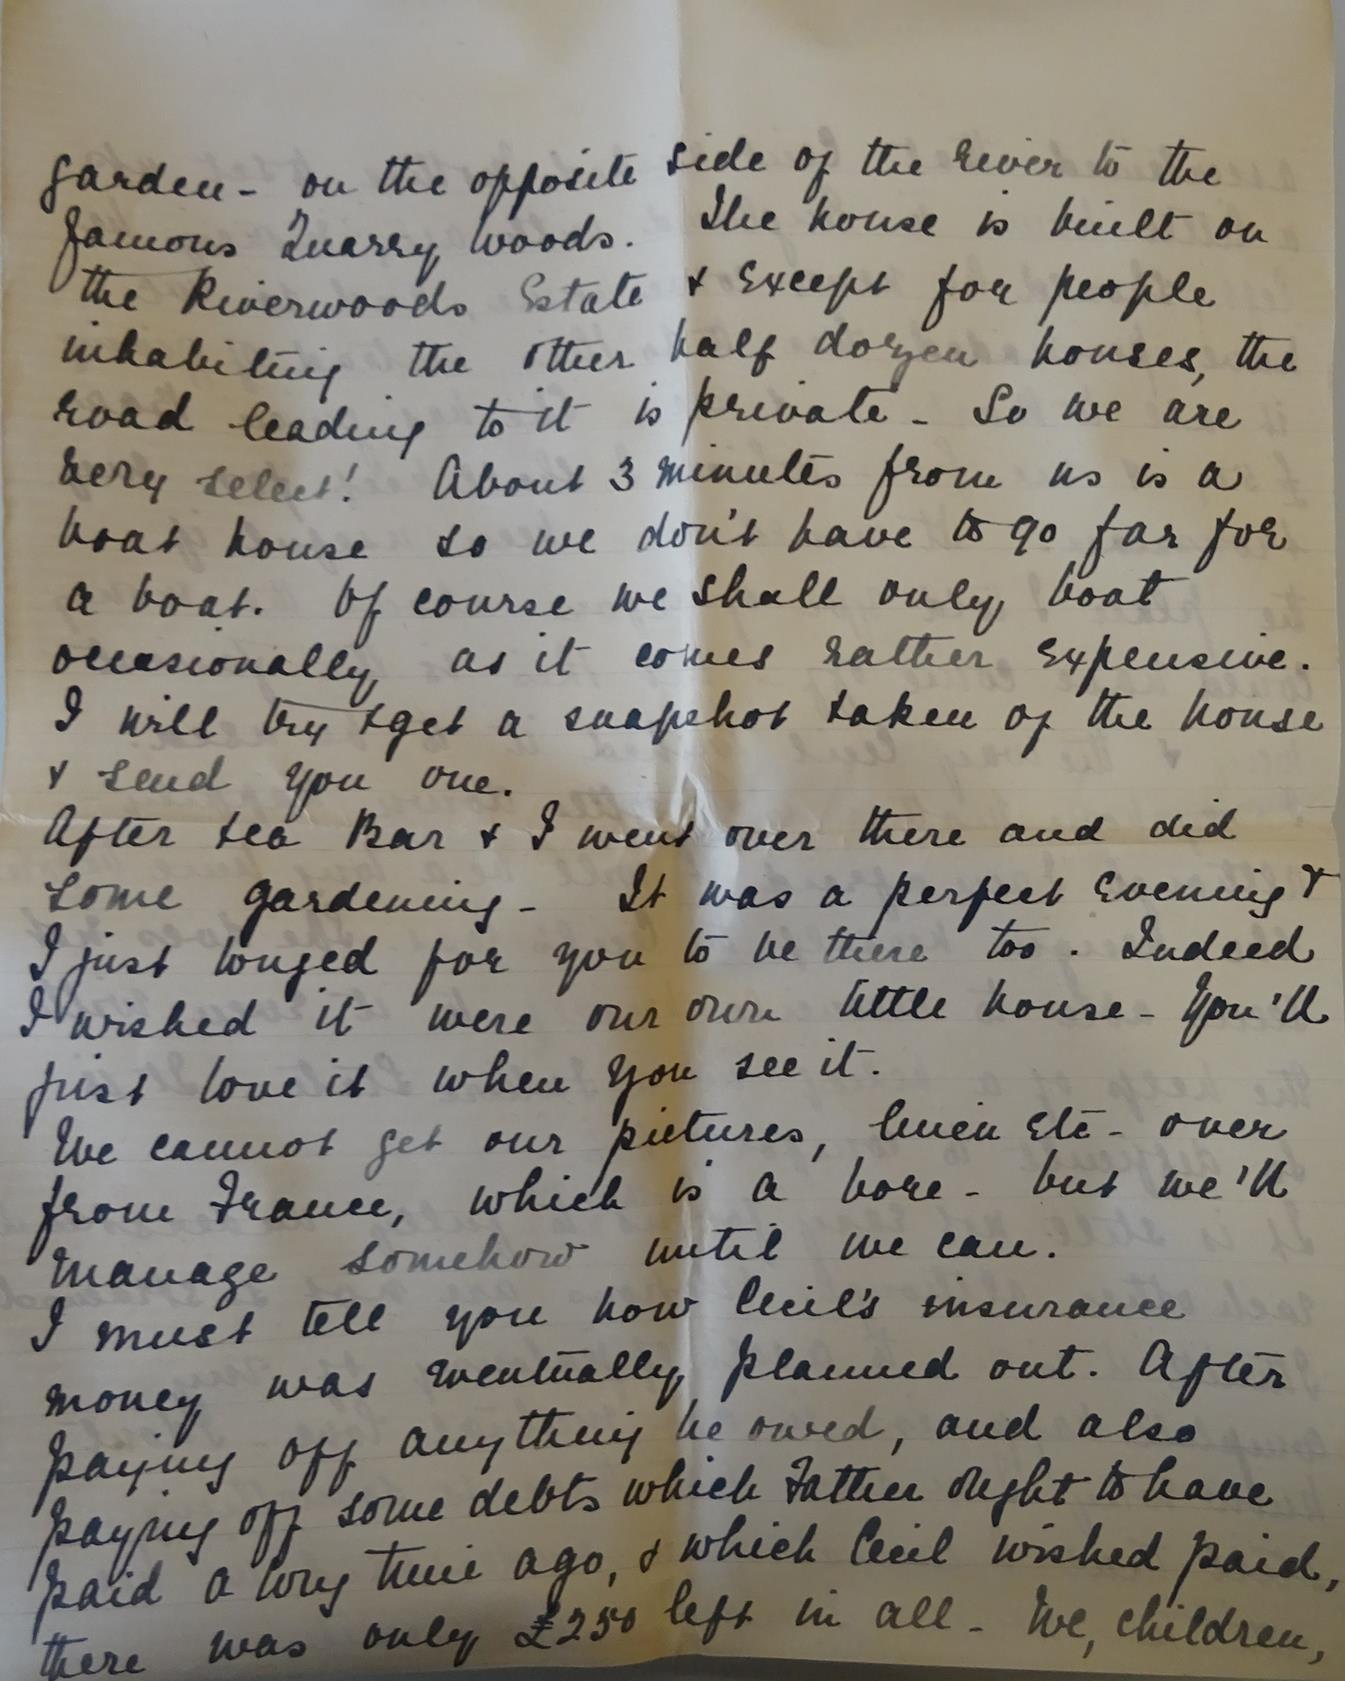 garden - on the opposite side of the river to the
famous Quarry Woods. The house is built on
the Riverwoods Estate & except for people
inhabiting the other half dozen houses, the
road leading to it is private - So we are
very select! About 3 minutes from us is a
boat house so we don't have to go far for
a boat. Of course we shall only boat
occasionally as it comes rather expensive.
I will try & get a snapshot taken of the house
& send you one.
After tea Bar & I went over there and did
some gardening - It was a perfect evening &
I just longed for you to be there too. Indeed
I wished it were our own little house - You'll
just love it when you see it.
We cannot get our pictures, linen etc - over
from France, which is a bore - but we'll
manage somehow until we can.
I must tell you how Cecil's insurance
money was eventually planned out. After
paying off anything he owed, and also
paying off some debts which Father ought to have
paid a long time ago, & which Cecil wished paid,
there was only £250 left in all - We, children,